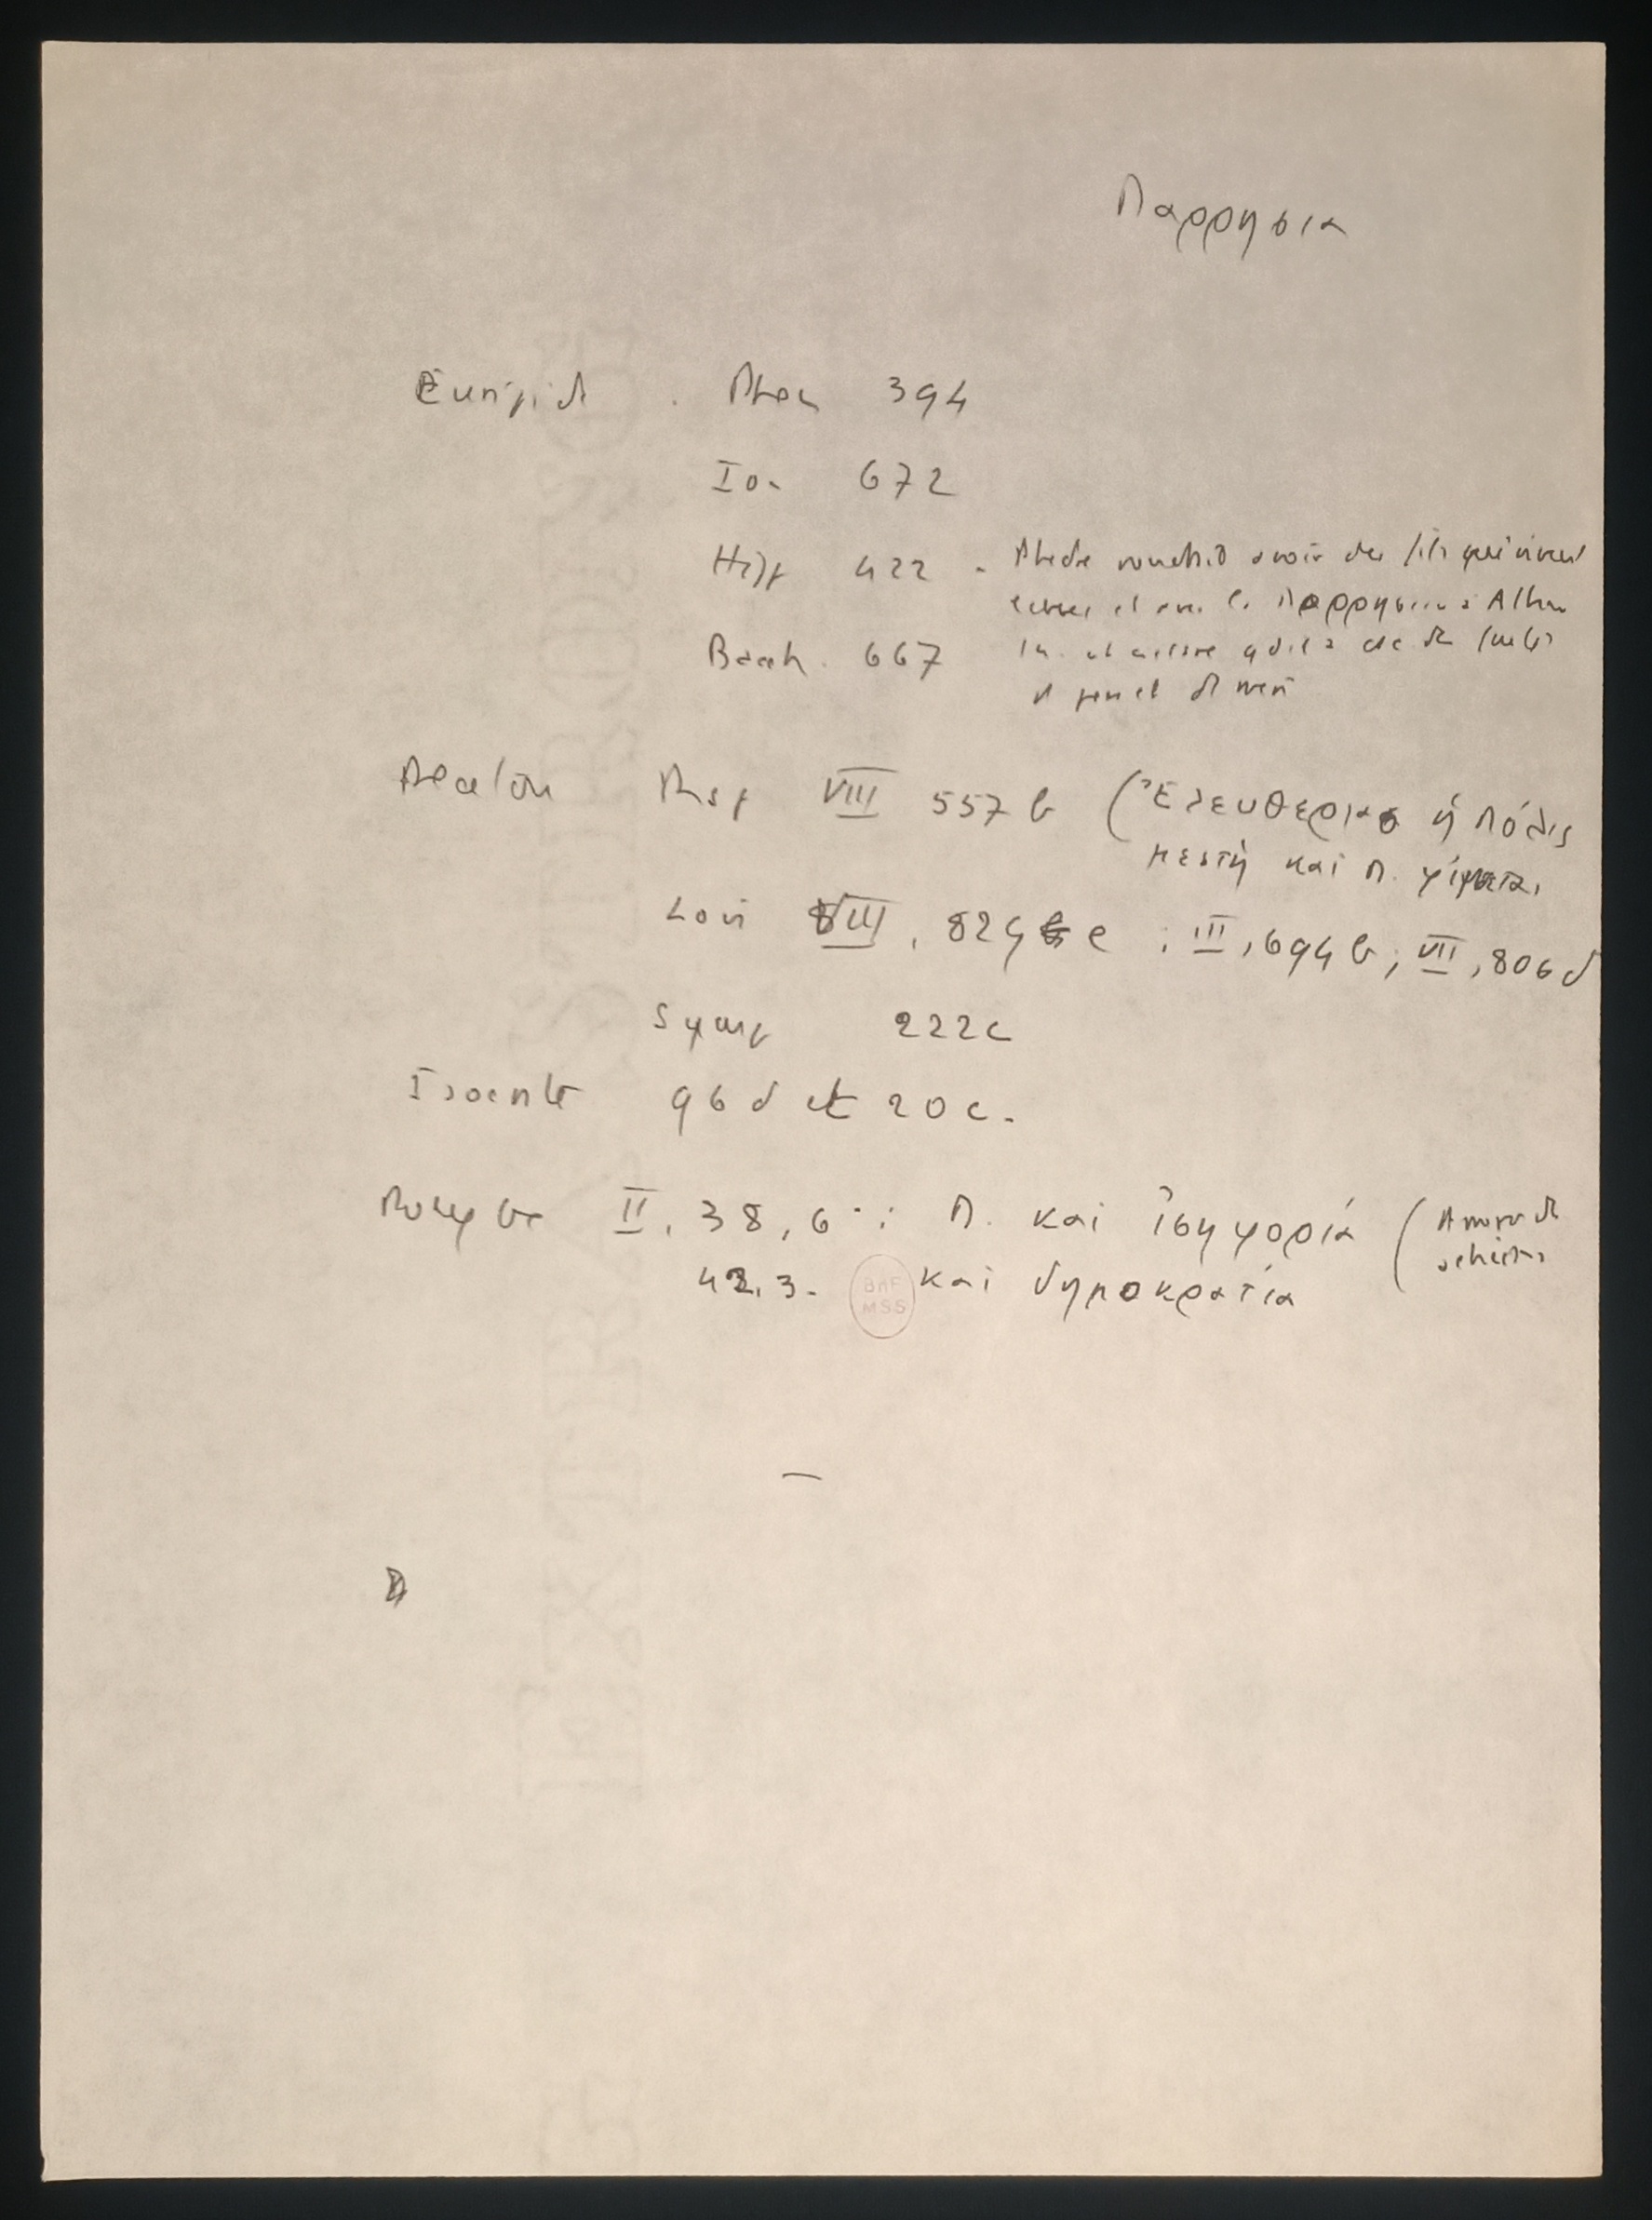 Παρρησια
Euripide . Phoen 394
Ion 672
Hipp 422 - Phèdre voudrait avoir des fils qui vivent
libres et avec la παρρησια à Athènes
de
Bacch. 667
Platon Rep VIII 557 b (Ἐλευθερίας ἡ πόλις
μεστὴ καὶ π. γίγνεται
Lois VIII, 829 e ; III, 694 b ; VII, 806 d
Symp 222c
Isocrate 96 d et 20 c.
Polybe II, 38, 6 : Π. καὶ ἰσηγορία (
42.3. καὶ δημοκρατία
BnF
MSS